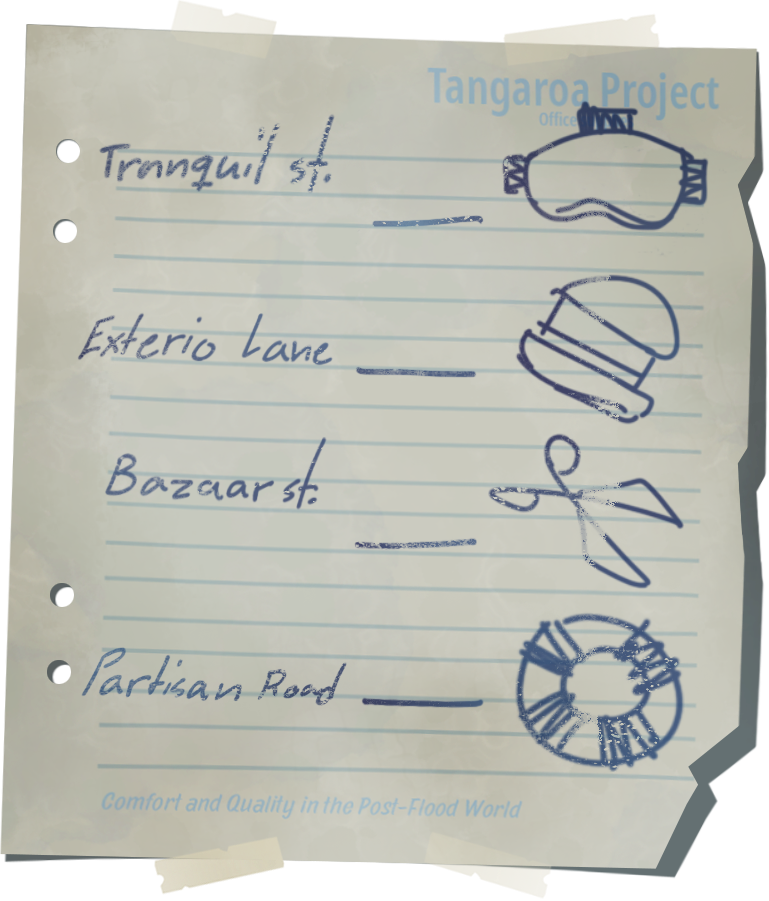 Tangaroa Project
Office
Tranquil st.
Exterio Lane
Bazaar st.
Partisan Road
Comfort and Quality in the Post-Flood World